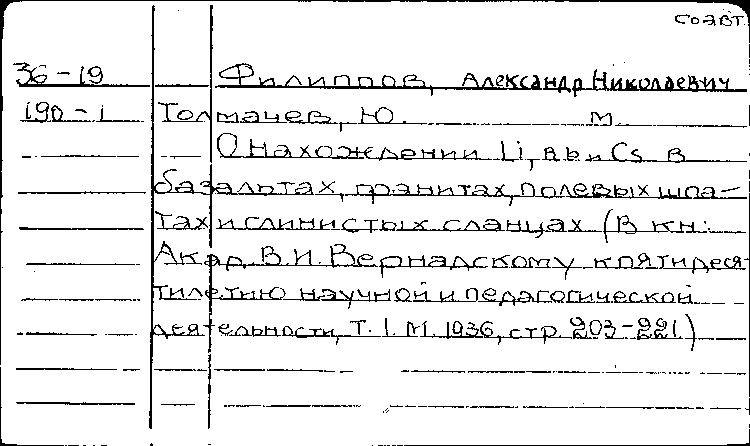 соавт
36-19 Филиппов, Александр Николаевич
190-1 Толмачев, Ю. М.
О нахождении Li, Rb и Cs в
базальтах, гранитах, полевых шпа-
тах и глинистых сланцах (В кн:
Акад. В.И. Вернадскому к пятидеся-
тилетию научной и педагогической
деятельности, Т. 1. М. 1936, стр. 203-221)